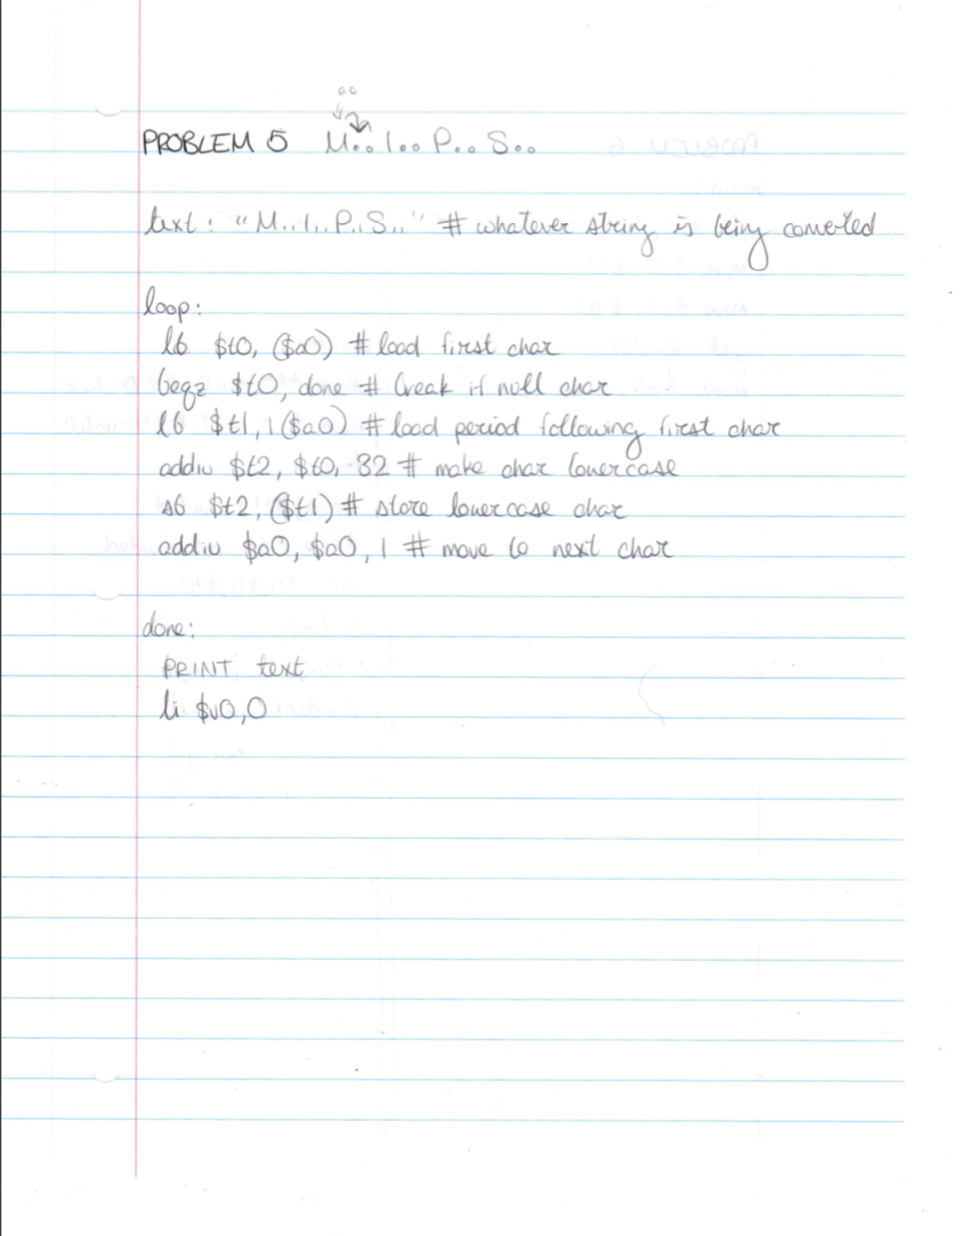 a0
PROBLEM 5 M.. I.. P.. S..
text: "M..I..P..S.." # whatever string is being converted
loop:
lb $t0, ($a0) # load first char
beqz $t0, done # break if null char
lb $t1, 1($a0) # load period following first char
addiu $t2, $t0, 32 # make char lowercase
sb $t2, ($t1) # store lowercase char
addiu $a0, $a0, 1 # move to next char
done:
PRINT text
li $v0,0